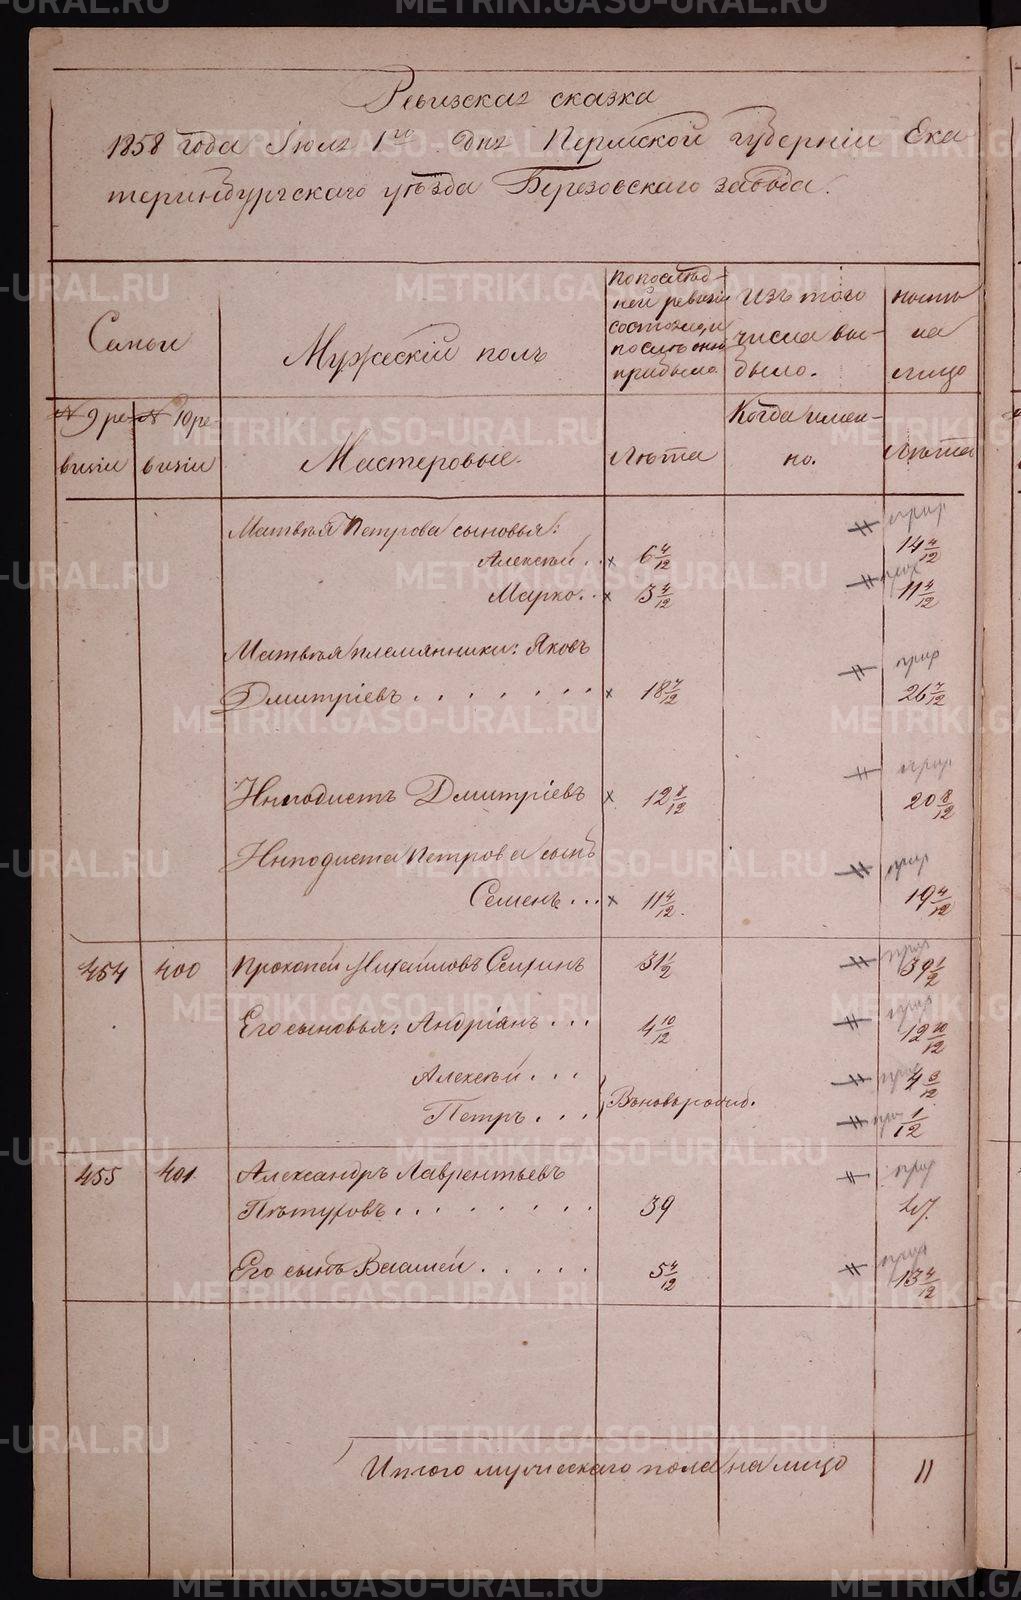 Ревизская сказка
1858 года Іюля 1го дня Пермской губерніи Ека
теринбургскаго уѣзда Березовскаго завода.
Семьи
Мужескій полъ
по послѣд-
ней ревизіи
состояло, и
послѣ оной
прибыло
изъ того
числа вы-
было.
на
лицо
№ 9 ре-
визіи
№ 10 ре-
визіи
Мастеровые.
Лѣта
Когда имен-
но.
Лѣта
Матвѣя Петрова сыновья:
Алексѣй . . × 6 4/12 14 4/12
Марко. . × 3 4/12 11 4/12
Матвѣя племянники: Яковъ
Дмитріевъ . . . . . . . × 18 7/12 26 7/12
Нимподистъ Дмитріевъ × 12 8/12 20 8/12
Нимподиста Петрова сынъ
Семенъ . . . × 11 4/12 19 4/12
454 400 Прокопей Михайловъ 31 1/2 39 1/2
Его сыновья: Андріянъ . . . 4 10/12 12 10/12
Алексѣй . . . 4 3/12
Петръ . . . 1/12
455 401 Александръ Лаврентьевъ
Пѣтуховъ . . . . . . . . 39 47.
Его сынъ Василей . . . . . 5 4/12 13 4/12
Итого мужескаго пола на лицо 11
METRIKI.GASO-URAL.RU